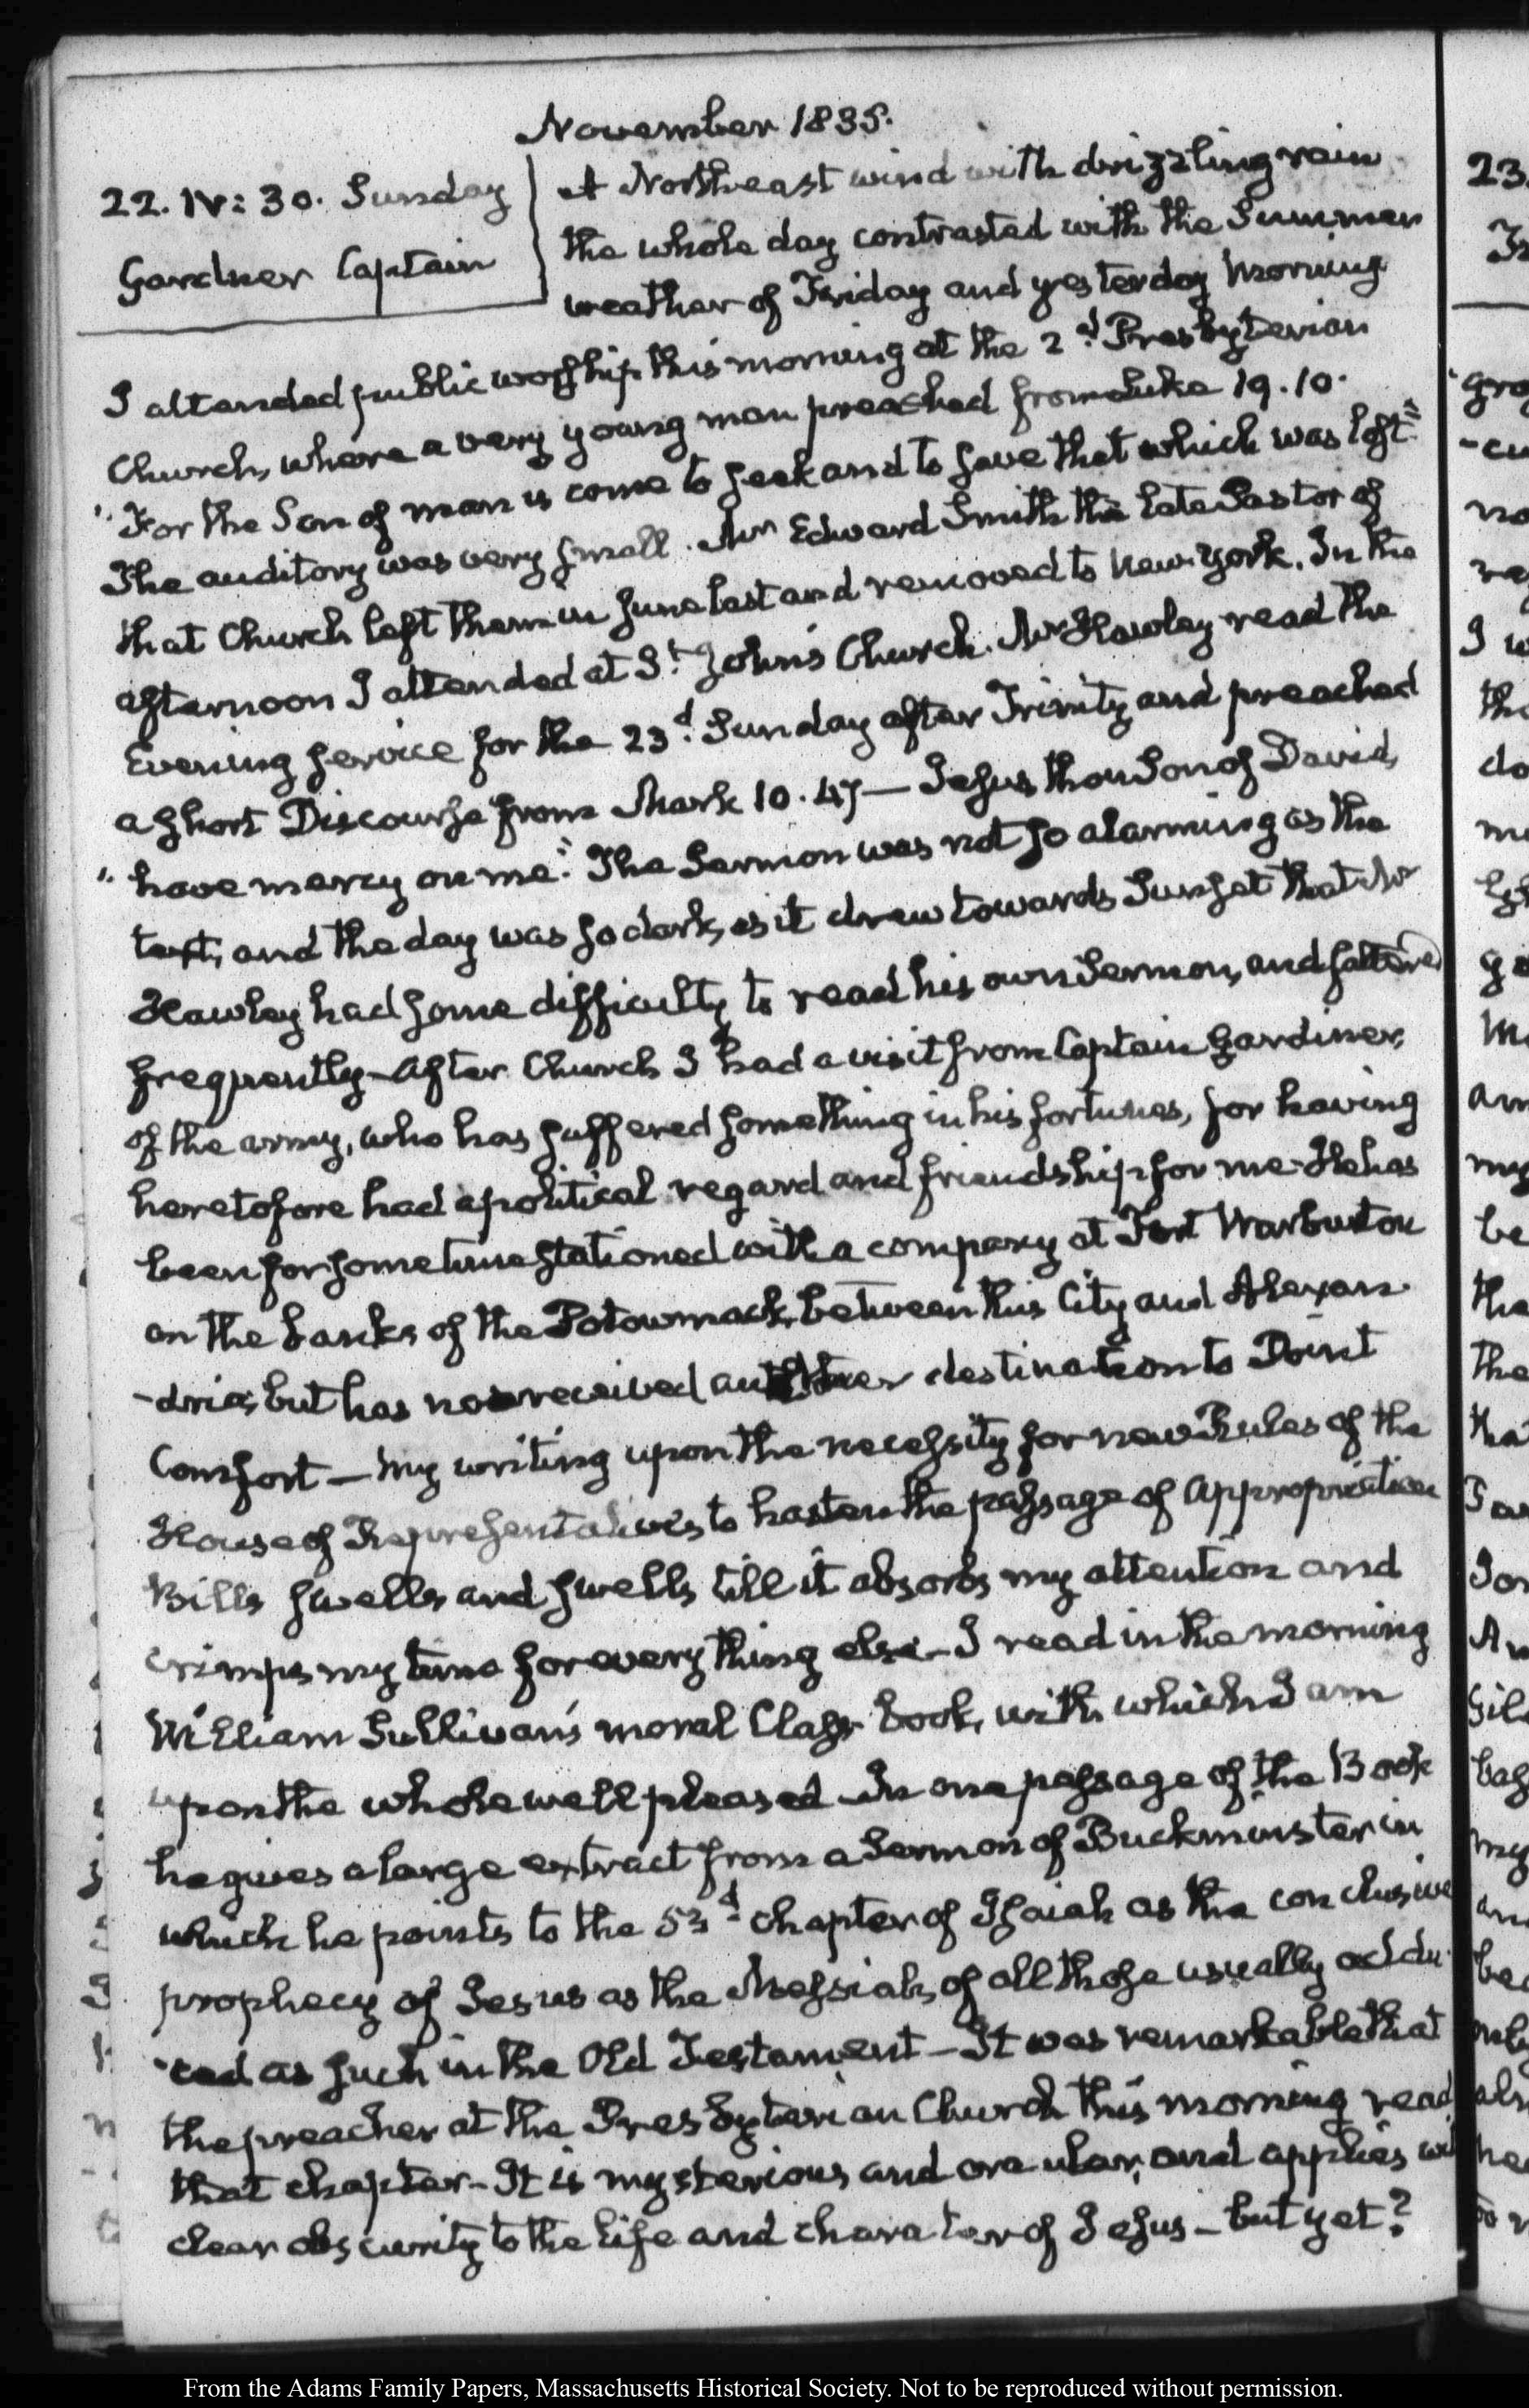 November 1835.
22. IV: 30. Sunday
Gardner Captain
A Northeast wind with drizzling rain
the whole day contrasted with the Summer
weather of Friday and yesterday Morning
I attended public worship this morning at the 2d. Presbyterian
Church, where a very young man preached from Luke 19.10.
"For the Son of man is come to seek and to save that which was lost"
The auditory was very small. Mr Edward Smith the late Pastor of
that Church left them in June last and removed to New-York. In the
afternoon I attended at St. John's Church. Mr Hawley read the
Evening service for the 23d. Sunday after Trinity and preached
a short Discourse from Mark 10.47 — Jesus thou Son of David,
"have mercy on me." The Sermon was not so alarming as the
text, and the day was so dark, as it drew towards Sunset that Mr
Hawley had some difficulty to read his own Sermon, and faltered
frequently — After Church I had a visit from Captain Gardiner,
of the army, who has suffered something in his fortunes, for having
heretofore had a political regard and friendship for me. He has
been for some time stationed with a company at Fort Warburton
on the banks of the Potowmack, between this City and Alexan-
-dria, but has now received another destination to Point
Comfort — My writing upon the necessity for new Rules of the
House of Representatives to hasten the passage of Appropriation
Bills swells and swells till it absorbs my attention and
crimps my time for every thing else — I read in the morning
William Sullivan's moral Class Book, with which I am
upon the whole well pleased — In one passage of the Book
he gives a large extract from a Sermon of Buckminster in
which he points to the 53d. chapter of Isaiah as the conclusive
prophecy of Jesus as the Messiah, of all those usually addu-
-ced as such in the Old Testament — It was remarkable that
the preacher at the Presbyterian Church this morning read
that chapter — It is mysterious and oracular, and applies with
clear obscurity to the life and character of Jesus — but yet?
From the Adams Family Papers, Massachusetts Historical Society. Not to be reproduced without permission.